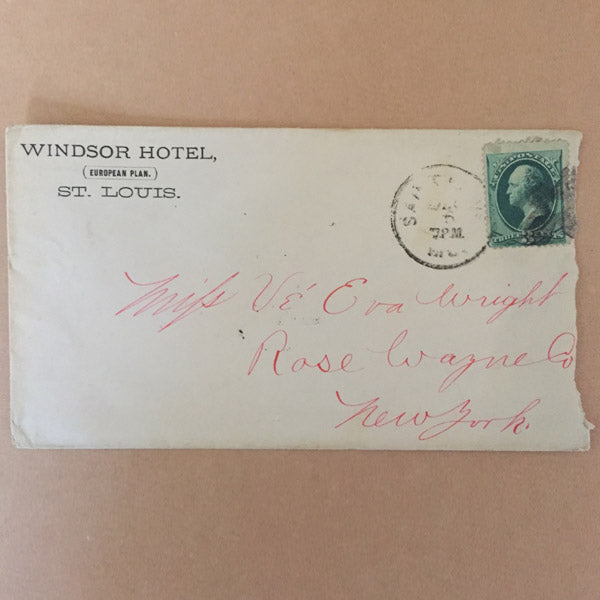 WINDSOR HOTEL,
(EUROPEAN PLAN.)
ST. LOUIS.
7PM
Miss Vé Eva Wright
Rose Wayne Co
New York.